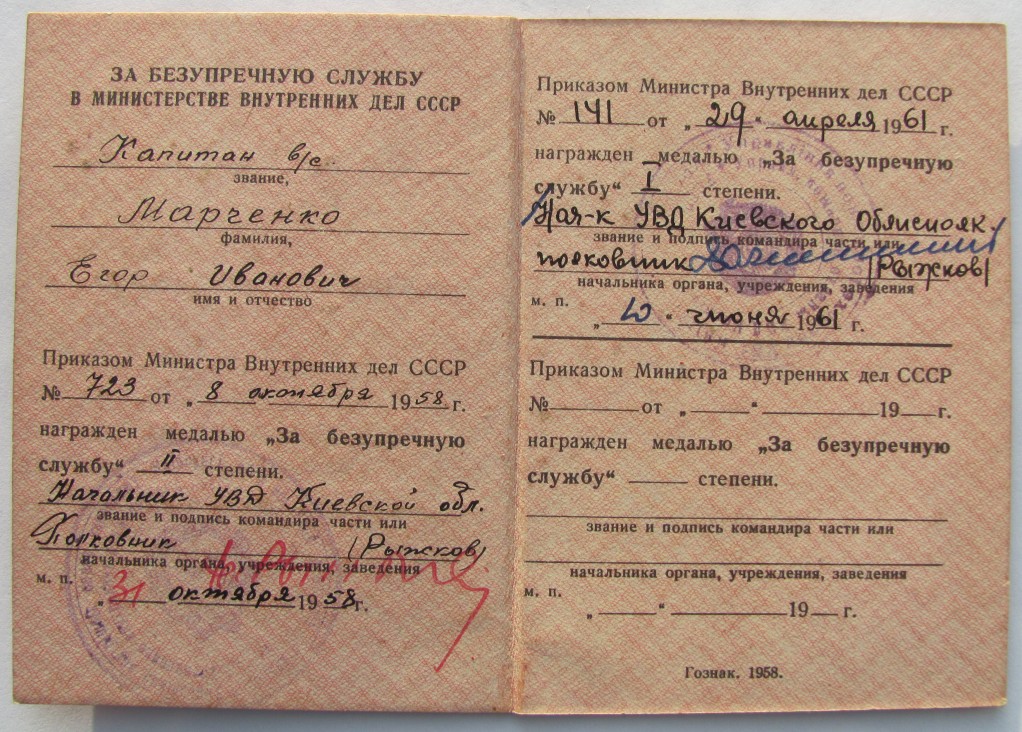 ЗА БЕЗУПРЕЧНУЮ СЛУЖБУ
В МИНИСТЕРСТВЕ ВНУТРЕННИХ ДЕЛ СССР
Капитан в/с.
звание,
Марченко
фамилия,
Егор Иванович
имя и отчество
Приказом Министра Внутренних дел СССР
№ 723 от „ 8 октября 1958 г.
награжден медалью „За безупречную
службу“ II степени.
Начальник УВД Киевской обл.
звание и подпись командира части или
Полковник (Рыжков)
начальника органа, учреждения, заведения
м. п.
„31 октября 1958г.
Приказом Министра Внутренних дел СССР
№ 141 от „29“ апреля 1961 г.
награжден медалью „За безупречную
службу“ I степени.
Нач-к УВД Киевского
звание и подпись командира части или
полковник (Рыжков)
начальника органа, учреждения, заведения
м. п.
„10“ июня 1961 г.
Приказом Министра Внутренних дел СССР
№ — от „—“ — 19— г.
награжден медалью „За безупречную
службу“ — степени.
звание и подпись командира части или
начальника органа, учреждения, заведения
м. п.
„ “ 19 г.
Гознак. 1958.